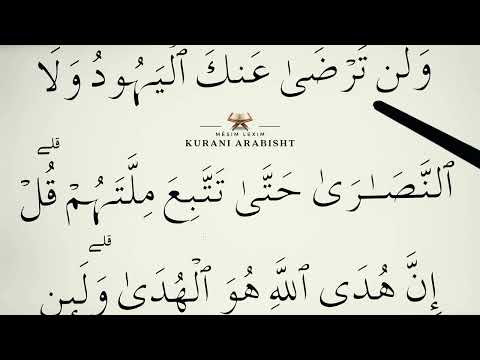 وَلَن تَرْضَىٰ عَنكَ ٱلْيَهُودُ وَلَا
MËSIM LEXIM
KURANI ARABISHT
ٱلنَّصَـٰرَىٰ حَتَّىٰ تَتَّبِعَ مِلَّتَهُمْ ۗ قُلْ
إِنَّ هُدَى ٱللَّهِ هُوَ ٱلْهُدَىٰ ۗ وَلَئِنِ